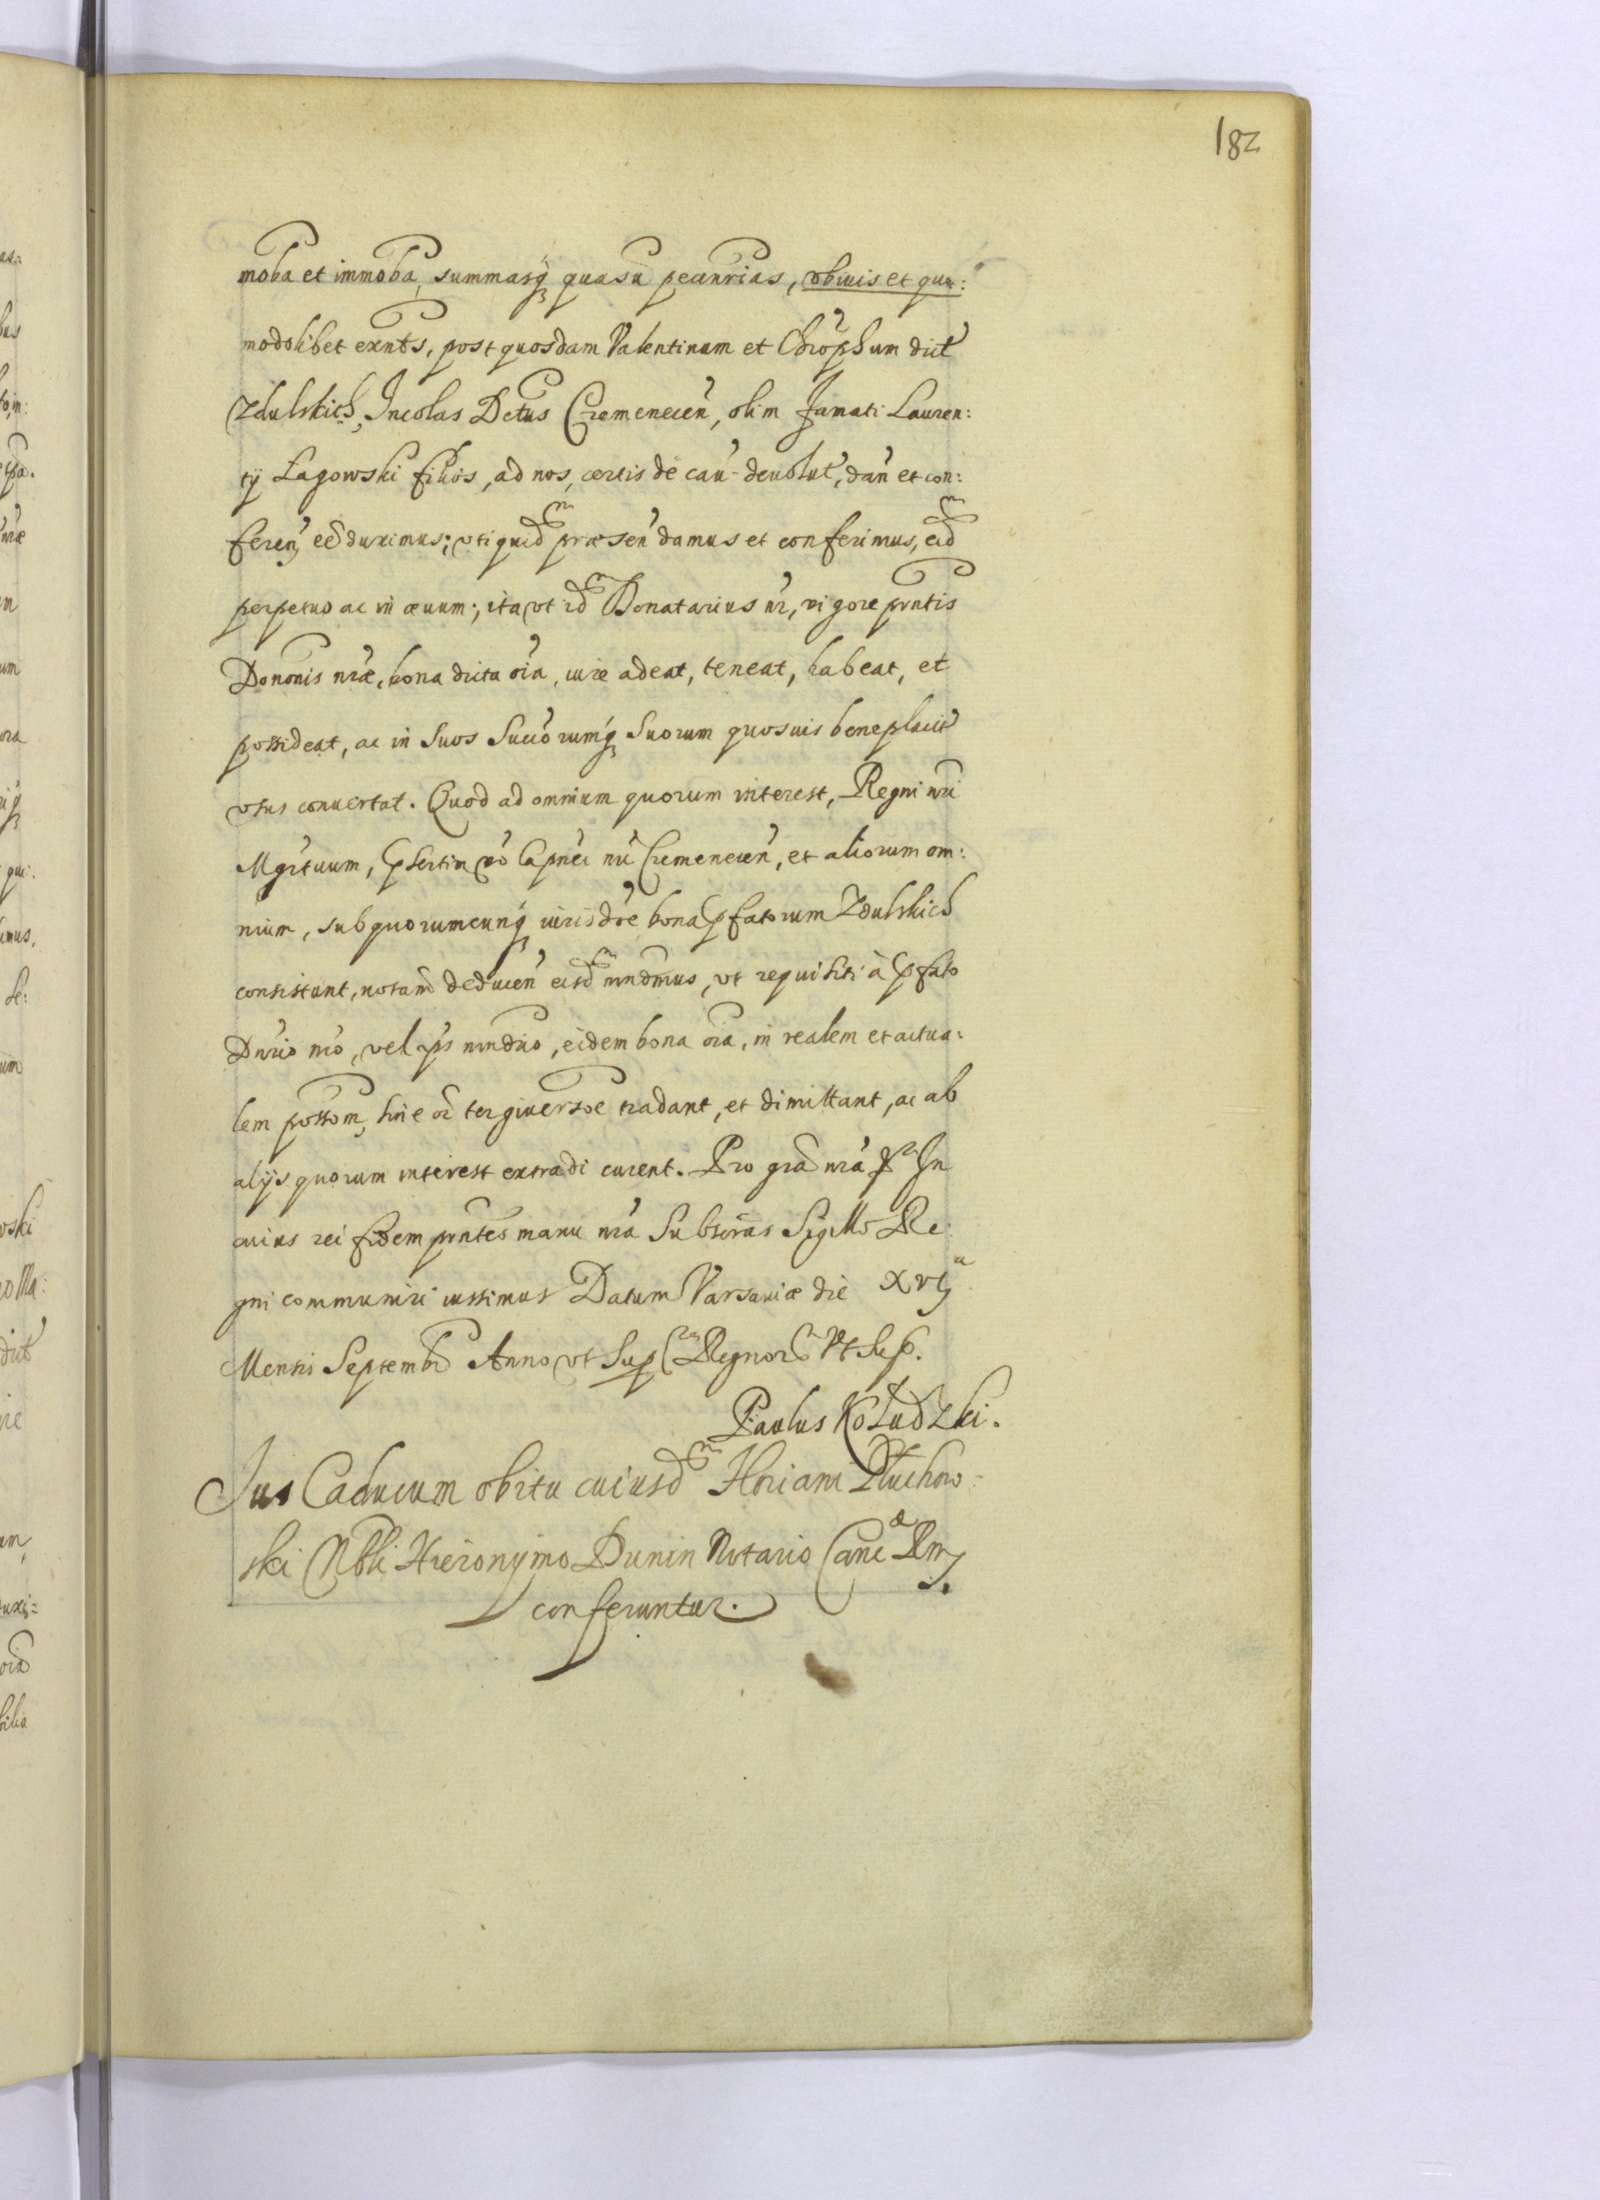 182
moba et immoba, summasq̨ quasũ pecunrias, vbiuis et quo:
modolibet exnts, post quosdam Valentinum et Chrophum dict
Zdulskich, Incolas Dctus Cremenecen, olim Famati Lauren:
tij Łagowski filios, ad nos, certis de cau- deuolut, dan et con:
feren, eẽ duximus; vti quid praesen damus et conferimus, eid
perpetuo ac in æuum; ita vt id Donatarius nr, vigore pntis
Dononis nræ, bona dicta oia, iure adeat, teneat, habeat, et
possideat, ac in Suos Succorumq̨ Suorum quosuis beneplacit
vsus conuertat. Quod ad omnium quorum interest, Regni nri
Mgrtuum, psertim vo Capnei nri Cremenecen, et aliorum om:
nium, sub quorumcunq̨ iurisdoe bona pfatorum Zdulskich
consistunt, notam deducen eisd mndmus, vt requisiti à pfato
Dnrio nro, vel ips mndrio, eidem bona oia, in realem et actua:
lem possom, sine oi tergiuersoe tradant, et dimittant, ac ab
alijs quorum interest extradi curent. Pro gra nra In
cuius rei fidem pntes manu nra Subscras Sigillo Re:
gni communiri iussimus Datum Varsauiæ die XVI
Mensis Septembr Anno vt Sup Regnor Vt Sup.
Paulus Kołudzki.
Jus Caducum obitu cuiusd Floriani Pluchow:
ski Nbli Hieronymo Dunin Notario Canc Rni
conferuntur.